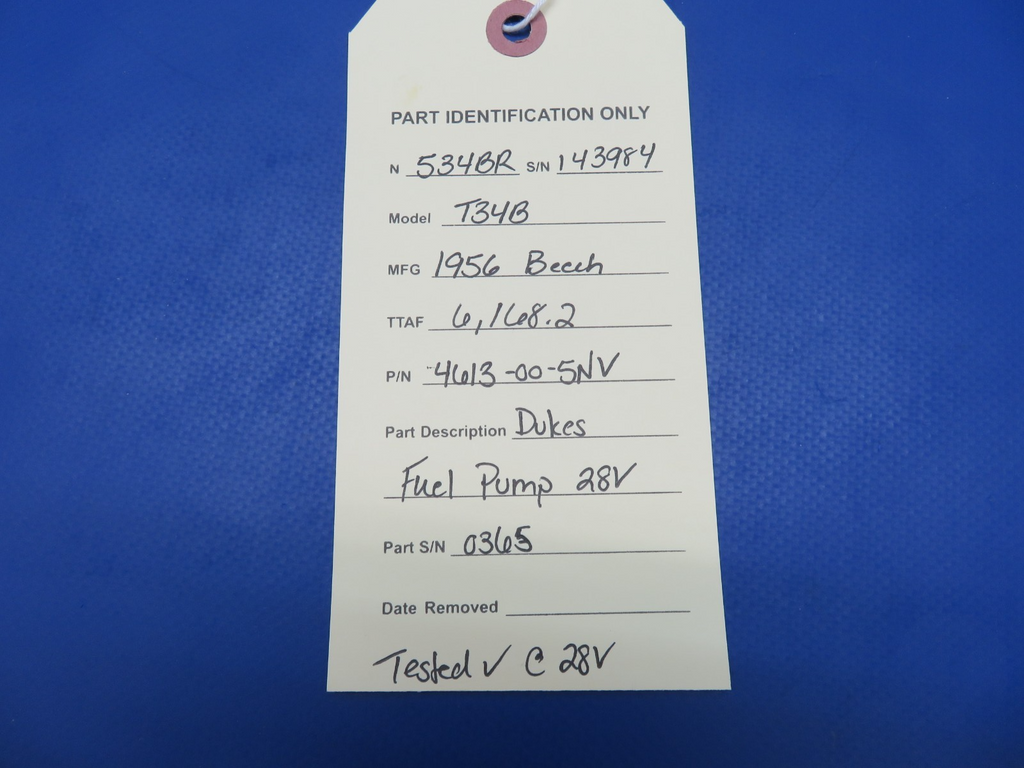 PART IDENTIFICATION ONLY
N 534BR S/N 143984
Model T34B
MFG 1956 Beech
TTAF 6,168.2
P/N 4613-00-5NV
Part Description Dukes
Fuel Pump 28V
Part S/N 0365
Date Removed
Tested ✓ @ 28V